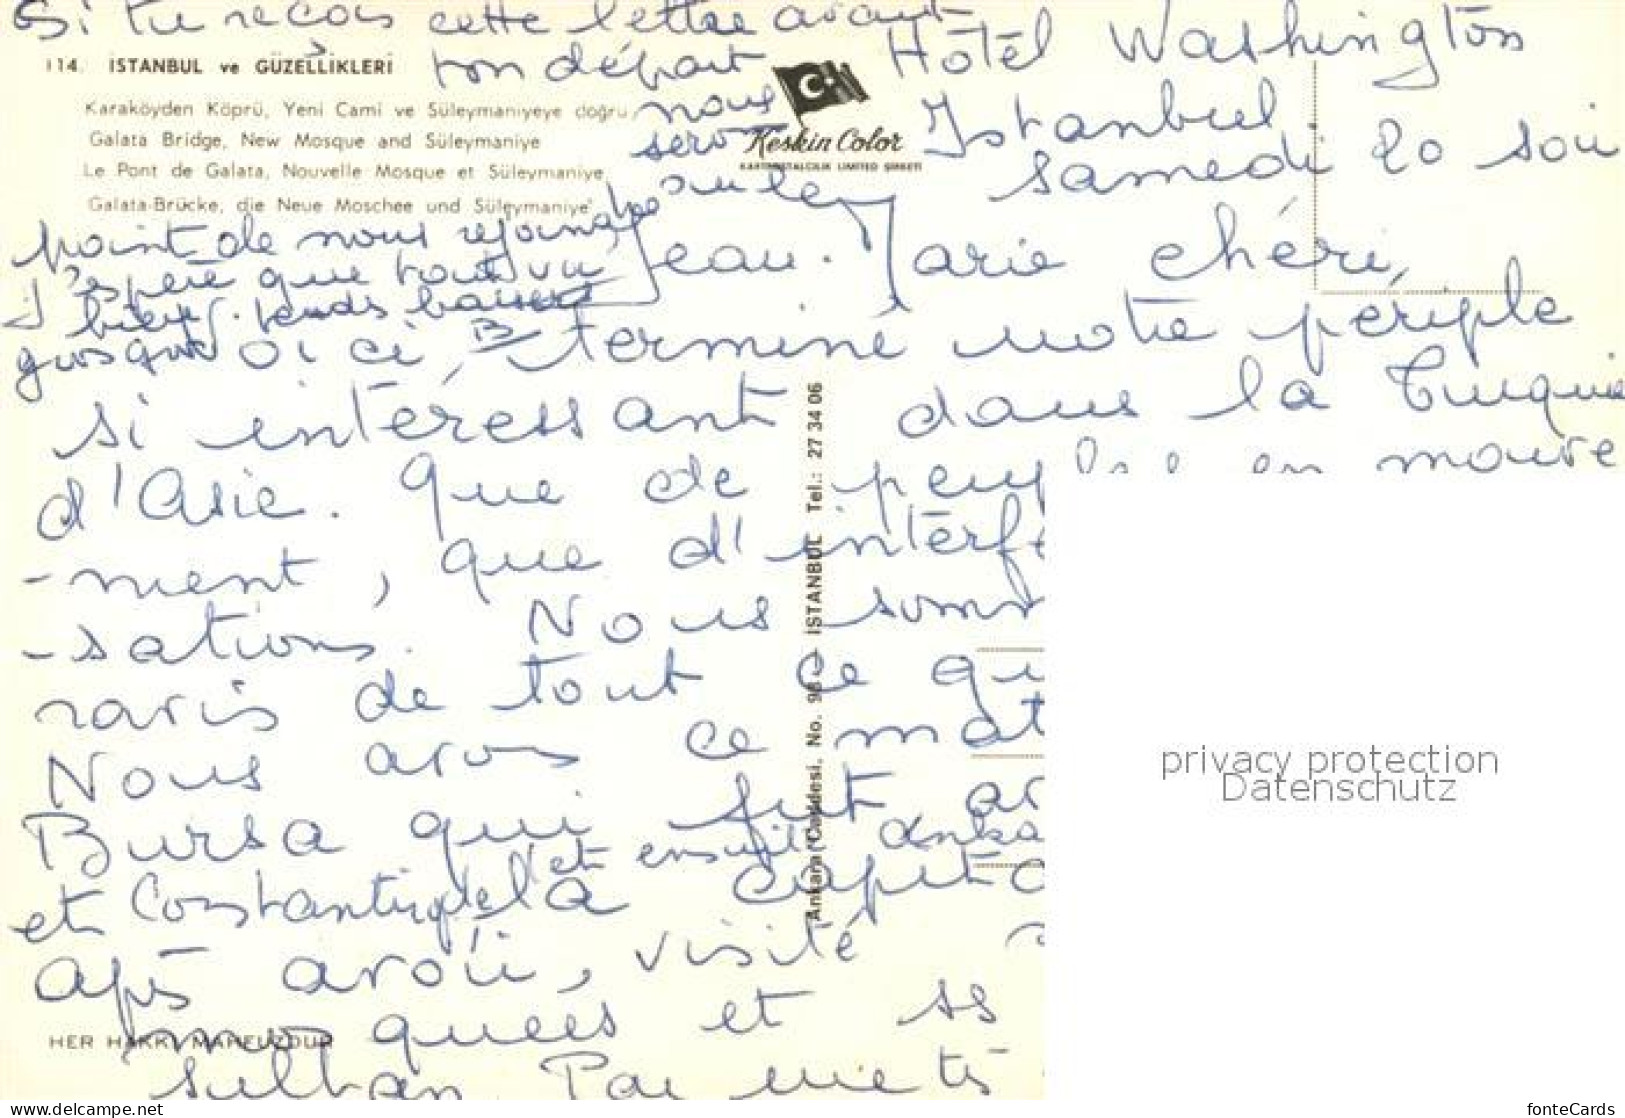 Si tu reçois cette lettre avant
ton départ
nous
114. İSTANBUL ve GÜZELLİKLERİ
Karaköyden Köprü, Yeni Cami ve Süleymaniyeye doğru
Galata Bridge, New Mosque and Süleymaniye
Le Pont de Galata, Nouvelle Mosque et Süleymaniye
Galata-Brücke, die Neue Moschee und Süleymaniye
Keskin Color
KARTPOSTALCILIK LIMITED ŞIRKETI
point de nous rejoindre
J'espère que tout va
bien. tendres baisers
B
Hôtel Washington
Istanbul
samedi 20 soir
Jean-Marie chéri,
ci terminé notre périple
si intéressant dans la Turquie
d'Asie. Que de en mouve
-ment, que d'
-sations. Nous
ravis de tout ce
Nous avons ce
Bursa qui fut
et ensuite
et Constantinople la
après avoir visité
mosquées et
sultan Par
Ankara Caddesi. No. 98 - İSTANBUL Tel.: 27 34 06
HER HAKKI MAHFUZDUR
privacy protection
Datenschutz
www.delcampe.net
fonteCards